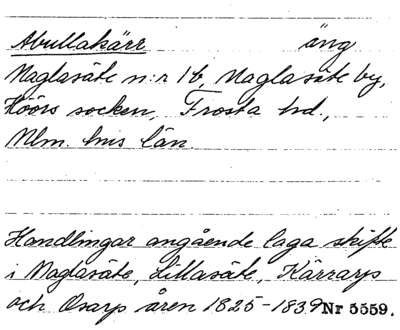 Abullakärr äng
Maglasäte n:r 1b, Maglasäte by,
Höörs socken, Frosta hd.,
Mlm. hus län.
Handlingar angående laga skifte
i Maglasäte, Lillasäte, Kärrarp
och Osarp åren 1825-1839 Nr 5559.